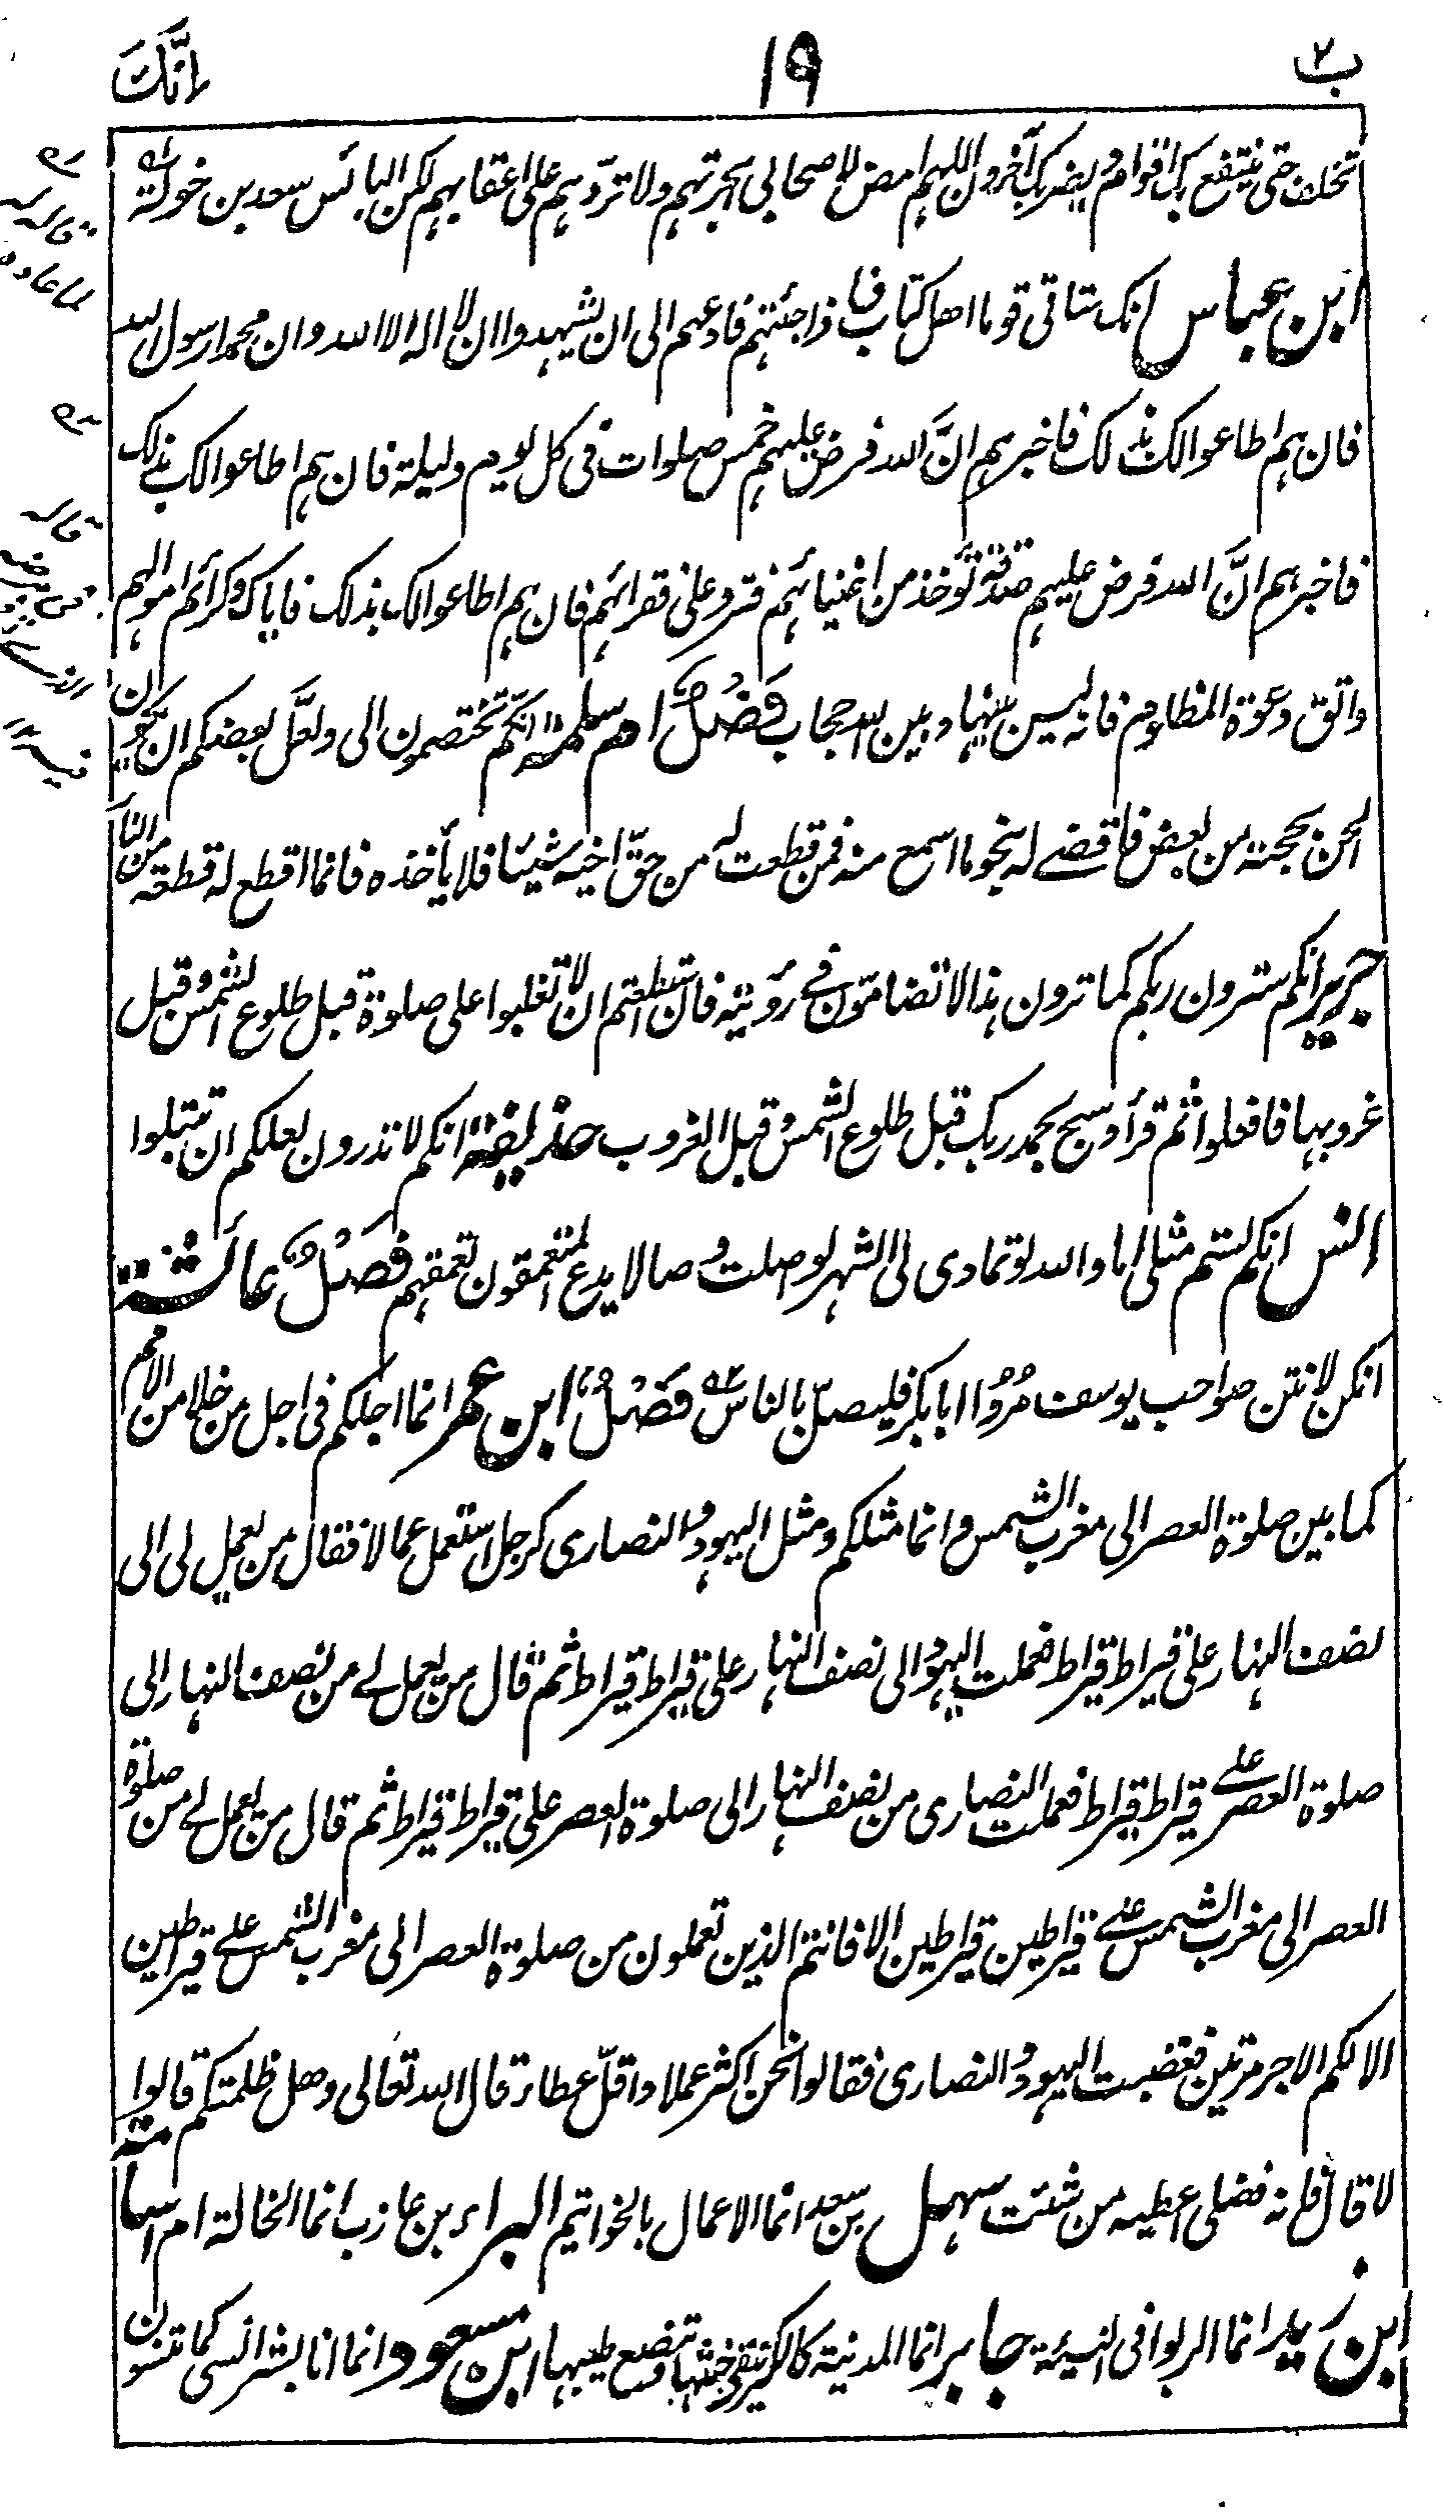 ب٢ ١٩ انَّكَ
تخلف حتى ينتفع بك اقوام ويضر بك آخرون اللهم امض لاصحابي هجرتهم ولا تردّهم على اعقابهم لكن البائس سعد بن خولة
ابن عباس انك ستاتى قوما اهل كتاب فاذا جئتهم فادعهم الى ان يشهدوا ان لا اله الا الله وان محمدا رسول الله
فان هم اطاعوا لك بذلك فاخبرهم انَّ الله فرض عليهم خمس صلوات فى كل يوم وليلة فان هم اطاعوا لك بذلك
فاخبرهم انَّ الله فرض عليهم صدقة تؤخذ من اغنيائهم فترد على فقرائهم فان هم اطاعوا لك بذلك فاياك وكرائم اموالهم
واتق دعوة المظلوم فانه ليس بينها وبين الله حجاب فَصْلٌ ام سلمة انكم تختصمون الى ولعلَّ بعضكم ان يكون
الحن بحجته من بعض فاقضے له بنحو ما اسمع منه فمن قطعت له من حقّ اخيه شيئا فلا يأخذه فانما اقطع له قطعة من النار
جرير انكم سترون ربكم كما ترون هذا لا تضامّون فے رؤيته فان استطعتم ان لا تغلبوا على صلوة قبل طلوع الشمس وقبل
غروبها فافعلوا ثم قرأ وسبح بحمد ربك قبل طلوع الشمس وقبل الغروب حذيفة انكم لا تدرون لعلكم ان تبتلوا
انس انكم لستم مثلى اما والله لو تمادى لى الشهر لواصلت وصالا يدع المتعمقون تعمقهم فصلٌ عائشة
انكن لانتن صواحب يوسف مُرُوا ابا بكر فليصلّ بالناس فَصْلٌ ابن عمر انما اجلكم فى اجل من خلا من الامم
كما بين صلوة العصر الى مغرب الشمس وانما مثلكم ومثل اليهود والنصارى كرجل استعمل عمالا فقال من يعمل لى الى
نصف النهار على قيراط قيراط فعملت اليهود الى نصف النهار على قيراط قيراط ثم قال من يعمل لے من نصف النهار الى
صلوة العصر علے قيراط قيراط فعملت النصارى من نصف النهار الى صلوة العصر على قيراط قيراط ثم قال من يعمل لے من صلوة
العصر الى مغرب الشمس علے قيراطين قيراطين الا فانتم الذين تعملون من صلوة العصر الى مغرب الشمس علے قيراطين
الا لكم الاجر مرتين فغضبت اليهود والنصارى فقالوا نحن اكثر عملا واقلّ عطاء قال الله تعالى وهل ظلمتكم قالوا
لا قال فانه فضلى اعطيه من شئت سهل بن سعد انما الاعمال بالخواتيم البراء بن عازب انما الخالة ام اسامة
ابن زيد انما الربوا فى النسيئة جابر انما المدينة كالكير تنقى خبثها وتنصع طيبها ابن مسعود انما انا بشر انسى كما تنسون